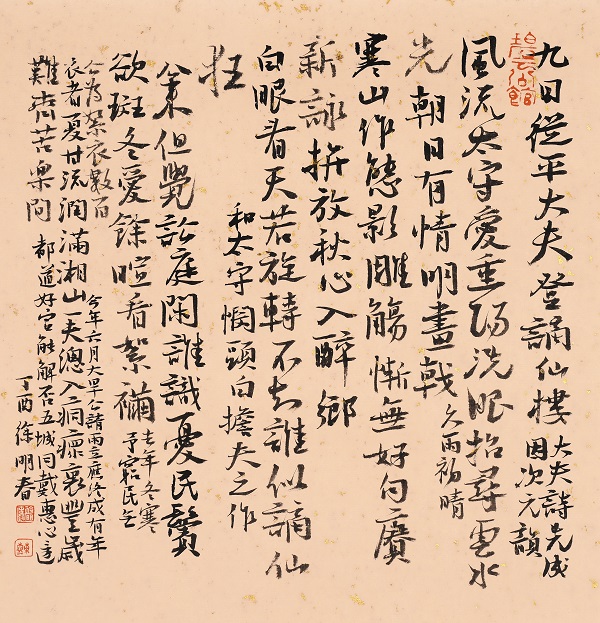 九日從平大夫登謫仙樓 大夫詩先成
因次元韻
風流太守愛重陽洗眼招尋雲水
光朝日有情明畫戟 久雨初晴
寒山作態影雕觴慚無好句賡
新詠拚放秋心入醉鄉
白眼看天若旋轉不知誰似謫仙
狂
和太守惘頭白擔夫之作
來但覺訟庭閑誰識憂民鬢
欲斑冬愛餘暄看絮襺 去年冬寒
予窮民無
公為絮衣數百
衣者夏甘流潤滿湘山 今年六月大旱公請雨立應終成有年
一夫總入痌瘝裏豐歲
難齊苦樂間 都道好官能解否五城同戴惠心
丁酉徐明春